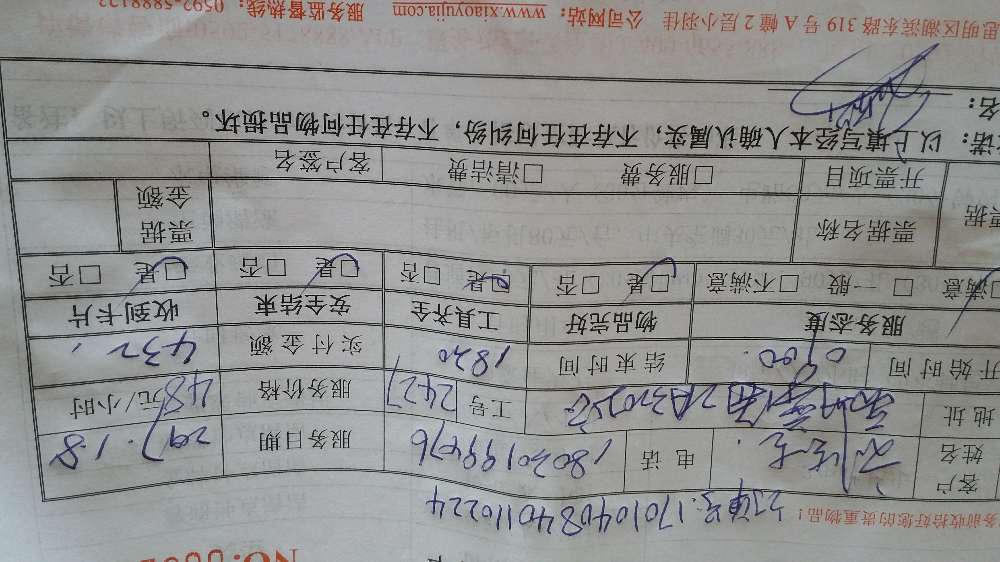 务前收拾好您的贵重物品!
订单号:17010408401102​24
客户姓名 电话 18030199476 服务日期 2017.1.8
地址 工号 2427 服务价格 48元/小时
开始时间 0900 结束时间 1820 实付金额 432
服务态度 物品完好 工具齐全 安全结束 收到卡片
满意 □一般 □不满意 □是 □否 □是 □否 □是 □否 □是 □否
票据 票据名称 票据金额
开票项目 □服务费 □清洁费 客户签名
诺:以上填写经本人确认属实,不存在任何纠纷,不存在任何物品损坏。
名:
思明区湖滨东路 319 号 A 幢 2 层小羽佳 公司网站:www.xiaoyujia.com 服务监督热线:0592-5888122